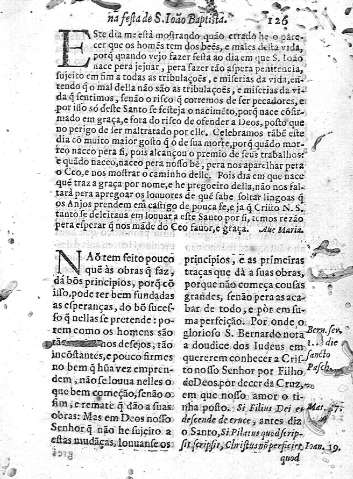 na festa de S. Ioão Baptista. 126
ESte dia me está mostrando quão errado he o pare-
cer que os homẽs tem dos beẽs, e males desta vida,
porq̃ quando vejo fazer festa ao dia em que S. Ioão
nace pera jejuar, pera fazer tão aspera penitencia,
sujeito em fim a todas as tribulações, e miserias da vida, en-
tendo q̃ o mal della não são as tribulações, e miserias da vi-
da q̃ sentimos, senão o risco q̃ corremos de ser pecadores, e
por isso só deste Santo se festeja o nacimẽto, porq̃ nace cõfir-
mado em graça, e fora do risco de ofender a Deos, posto que
no perigo de ser maltratado por elle. Celebramos tãbẽ este
dia cõ muito maior gosto q̃ o de sua morte, porq̃ quãdo mor-
reo naceo pera si, pois alcançou o premio de seus trabalhos:
e quãdo naceo, naceo pera nosso bẽ, pera nos aparelhar pera
o Ceo, e nos mostrar o caminho delle. Pois dia em que nace
quẽ traz a graça por nome, e he pregoeiro della, não nos fal-
tará pera apregoar os louvores de quẽ sabe soltar lingoas q̃
os Anjos prendem em castigo de pouca fe, e ja q̃ Cristo N. S.
tanto se deleitaua em louuar a este Santo por si, temos rezão
pera esperar q̃ nos mãde do Ceo fauor, e graça. Aue Maria.
NAõ tem feito pouco
quẽ ás obras q̃ faz,
dá bõs principios, porq̃ cõ
isso, pode ter bem fundadas
as esperanças, do bõ suces-
so q̃ nellas se pretende: po-
rem como os homens são
tão nos desejos, tão
incõstantes, e pouco firmes
no bem q̃ hũa vez empren-
dem, não se louua nelles o
que bem começão, senão o
fim, e remate q̃ dão a suas
obras: Mas em Deos nosso
Senhor q̃ não he sujeito a
estas mudãças, louuanse os
principios, e as primeiras
traças que dà a suas obras,
porque não começa cousas
grandes, senão pera as aca-
bar de todo, e por em su-
ma perfeição. Por onde o
glorioso S. Bernardo nota
a doudice dos Iudeus em
quererem conhecer a Cris-
to nosso Senhor por Filho
de Deos, por decer da Cruz,
em que nosso amor o ti-
nha posto. Si Filius Dei es
descende de cruce, antes diz
o Santo, Si Pilatus quod scrip-
sit scripsit, Christus nõ perficiet
quod
Bern. ser.
1. die
sancto
Pasch.
Mat. 27.
Ioan. 19.